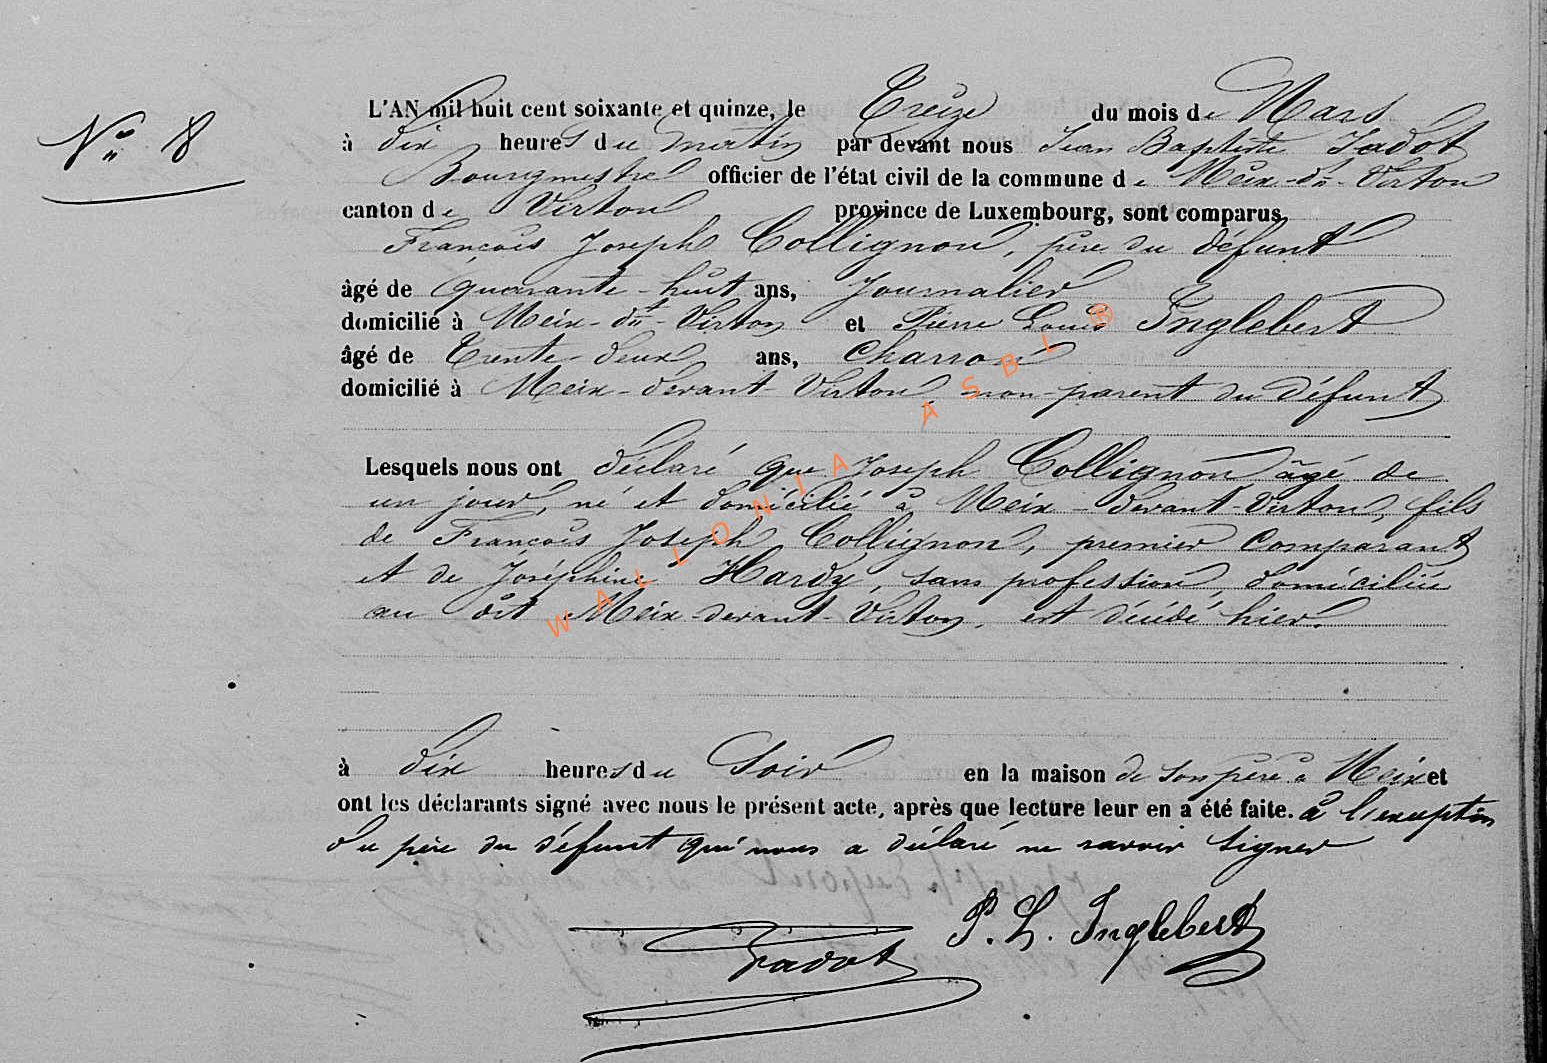 N° 8
L'AN mil huit cent soixante et quinze, le Treize du mois de Mars
à dix heures du matin par devant nous Jean Baptiste Jadot
Bourgmestre officier de l'état civil de la commune de Meix-dt-Virton
canton de Virton province de Luxembourg, sont comparus,
François Joseph Collignon, père du défunt
âgé de quarante-huit ans, Journalier
domicilié à Meix-dt-Virton et Pierre Louis Inglebert
âgé de Trente-deux ans, Charron
domicilié à Meix-devant Virton, non-parent du défunt
Lesquels nous ont déclaré que Joseph Collignon âgé de
un jour, né et domicilié à Meix-devant-Virton, fils
de François Joseph Collignon, premier Comparant
et de Joséphine Hardy, sans profession, domiciliée
au dit Meix-devant-Virton, est décédé hier.
à dix heures du Soir en la maison de son père à Meix et
ont les déclarants signé avec nous le présent acte, après que lecture leur en a été faite. à l'exception
du père du défunt qui nous a déclaré ne savoir signer
P. L. Inglebert
Jadot
WALLONIA ASBL ®